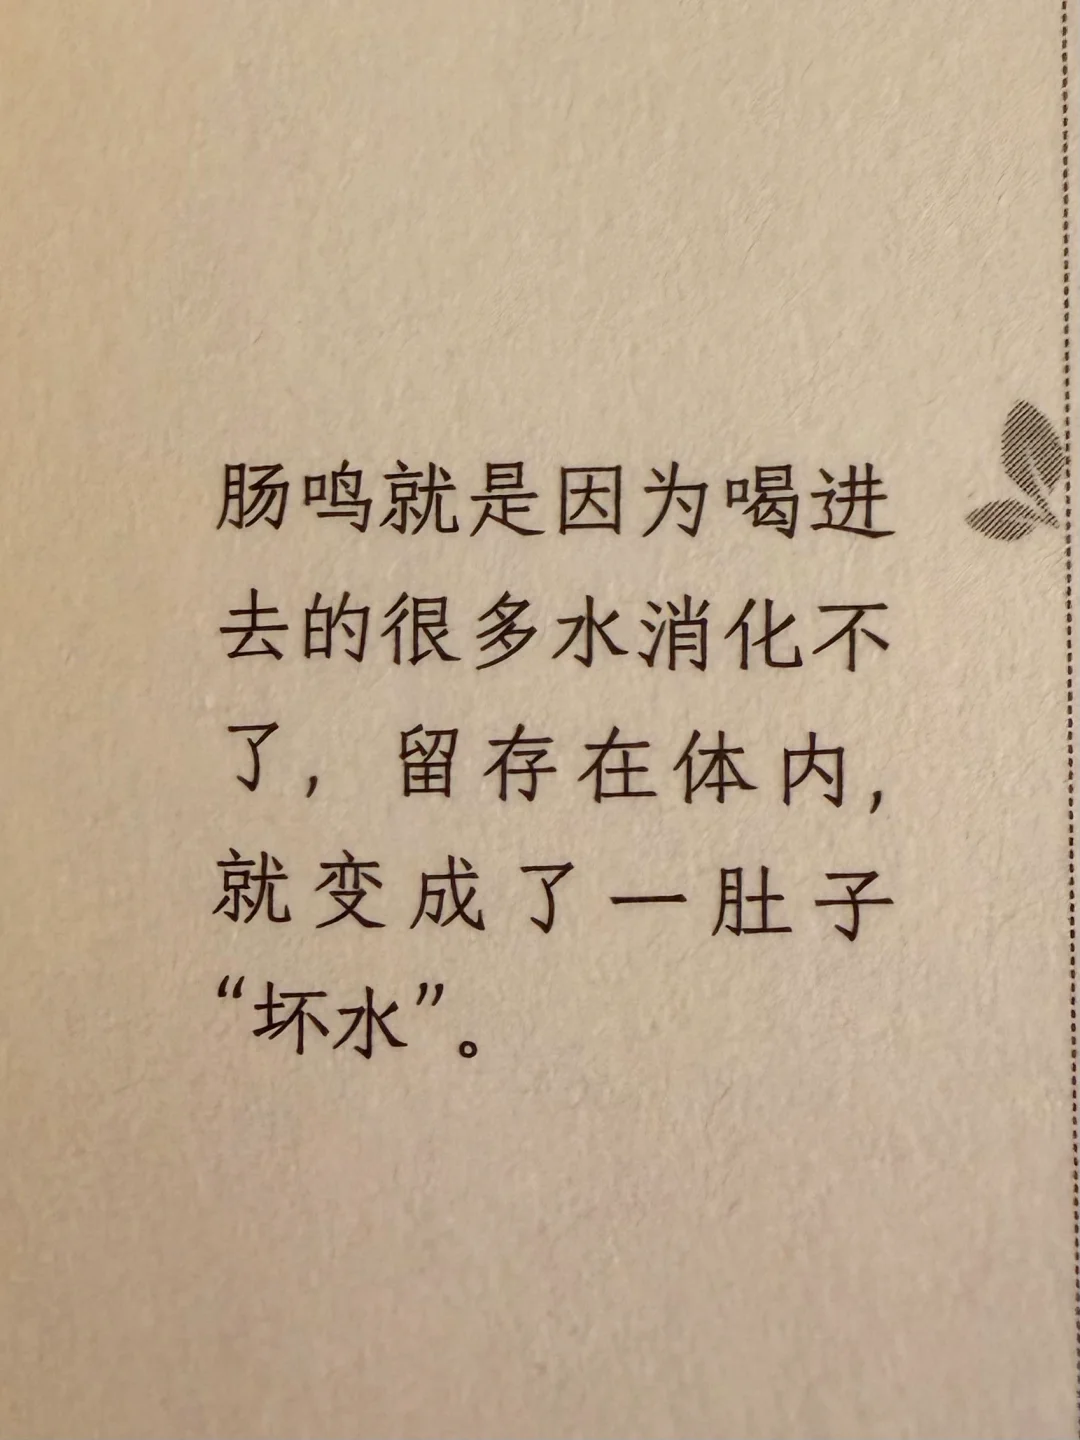 肠鸣就是因为喝进
去的很多水消化不
了，留存在体内，
就变成了一肚子
“坏水”。